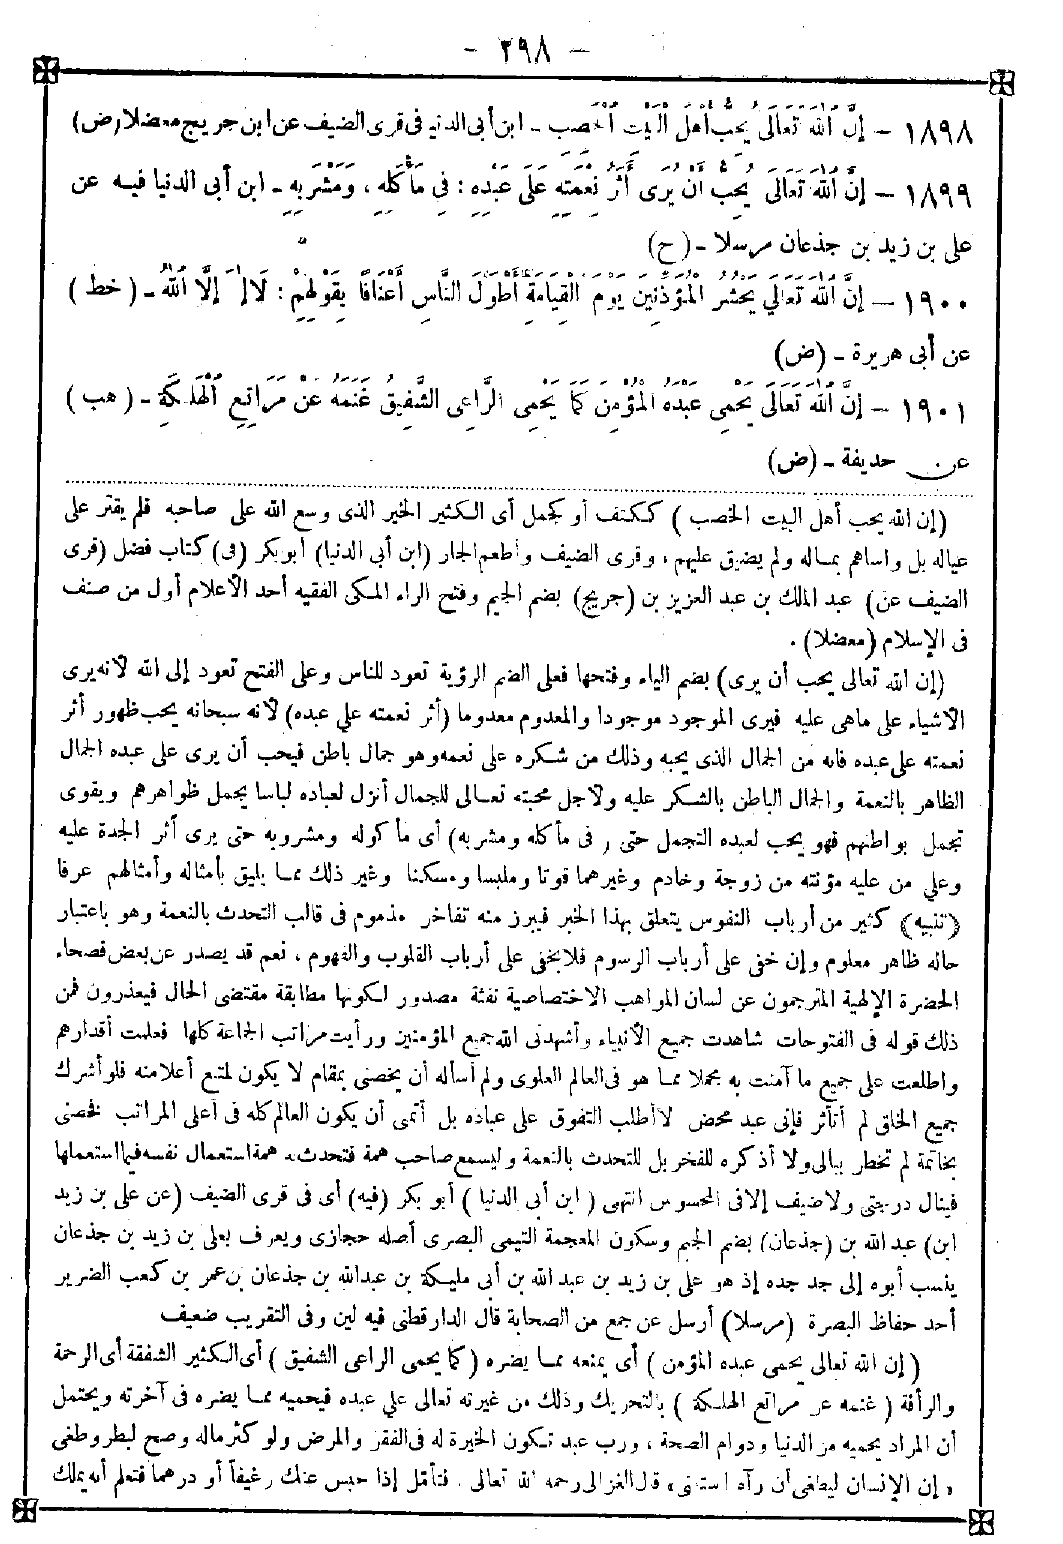 - ٢٩٨ -
١٨٩٨ - إِنَّ اللهَ تَعَالَى يُحِبُّ أَهْلَ الْبَيْتِ الْخَصِبَ - ابن أبى الدنيا فى قرى الضيف عن ابن جريج معضلا (ض)
١٨٩٩ - إِنَّ اللهَ تَعَالَى يُحِبُّ أَنْ يُرَى أَثَرُ نِعْمَتِهِ عَلَى عَبْدِهِ : فِى مَأْكَلِهِ ، وَمَشْرَبِهِ - ابن أبى الدنيا فيه عن
على بن زيد بن جذعان مرسلا - (ح)
١٩٠٠ - إِنَّ اللهَ تَعَالَى يَحْشُرُ الْمُؤَذِّنِينَ يَوْمَ الْقِيَامَةِ أَطْوَلَ النَّاسِ أَعْنَاقًا بِقَوْلِهِمْ : لَا إِلَهَ إِلَّا اللهُ - ( خط )
عن أبى هريرة - (ض)
١٩٠١ - إِنَّ اللهَ تَعَالَى يَحْمِى عَبْدَهُ الْمُؤْمِنَ كَمَا يَحْمِى الرَّاعِى الشَّفِيقُ غَنَمَهُ عَنْ مَرَاتِعِ الْهَلَكَةِ - ( هب )
عن حذيفة - (ض)
(إن الله يحب أهل البيت الخصب ) ككتف أو كجمل أى الكثير الخير الذى وسع الله على صاحبه فلم يقتر على
عياله بل واساهم بماله ولم يضيق عليهم ، وقرى الضيف وأطعم الجار (ابن أبى الدنيا) أبو بكر (فى) كتاب فضل (قرى
الضيف عن) عبد الملك بن عبد العزيز بن (جريج) بضم الجيم وفتح الراء المكى الفقيه أحد الأعلام أول من صنف
فى الإسلام (معضلا) .
(إن الله تعالى يحب أن يرى) بضم الياء وفتحها فعلى الضم الرؤية تعود للناس وعلى الفتح تعود إلى الله لأنه يرى
الأشياء على ماهى عليه فيرى الموجود موجودا والمعدوم معدوما (أثر نعمته على عبده) لأنه سبحانه يحب ظهور أثر
نعمته على عبده فانه من الجمال الذى يحبه وذلك من شكره على نعمه وهو جمال باطن فيحب أن يرى على عبده الجمال
الظاهر بالنعمة والجمال الباطن بالشكر عليه ولأجل محبته تعالى للجمال أنزل لعباده لباسا يجمل ظواهرهم ويقوى
تجمل بواطنهم فهو يحب لعبده التجمل حتى ( فى مأكله ومشربه) أى مأكوله ومشروبه حتى يرى أثر الجدة عليه
وعلى من عليه مؤنته من زوجة وخادم وغيرهما قوتا وملبسا ومسكنا وغير ذلك مما يليق بأمثاله وأمثالهم عرفا
(تنبيه) كثير من أرباب النفوس يتعلق بهذا الخبر فيبرز منه تفاخر مذموم فى قالب التحدث بالنعمة وهو باعتبار
حاله ظاهر معلوم وإن خفى على أرباب الرسوم فلا يخفى على أرباب القلوب والفهوم ، نعم قد يصدر عن بعض فصحاء
الحضرة الإلهية المترجمون عن لسان المواهب الاختصاصية نفثة مصدور لكونها مطابقة مقتضى الحال فيعذرون فمن
ذلك قوله فى الفتوحات شاهدت جميع الأنبياء وأشهدنى الله جميع المؤمنين ورأيت مراتب الجماعة كلها فعلمت أقدارهم
واطلعت على جميع ما آمنت به مجملا مما هو فى العالم العلوى ولم أسأله أن يخصنى بمقام لا يكون لمتبع أعلا منه فلو أشرك
جميع الخلق لم أتأثر فإنى عبد محض لا أطلب التفوق على عباده بل أتمنى أن يكون العالم كله فى أعلى المراتب فخصنى
بخاتمة لم تخطر ببالى ولا أذكره للفخر بل للتحدث بالنعمة وليسمع صاحب همة فتحدث له همة استعمال نفسه فيما استعملها
فينال درجتى ولا ضيف إلا فى المحسوس انتهى ( ابن أبى الدنيا ) أبو بكر (فيه) أى فى قرى الضيف (عن على بن زيد
ابن) عبد الله بن (جذعان) بضم الجيم وسكون المعجمة التيمى البصرى أصله حجازى ويعرف بعلى بن زيد بن جذعان
ينسب أبوه إلى جد جده إذ هو على بن زيد بن عبد الله بن أبى مليكة بن عبد الله بن جذعان بن عمر بن كعب الضرير
أحد حفاظ البصرة (مرسلا) أرسل عن جمع من الصحابة قال الدارقطنى فيه لين وفى التقريب ضعيف
( إن الله تعالى يحمى عبده المؤمن ) أى يمنعه مما يضره ( كما يحمى الراعى الشفيق ) أى الكثير الشفقة أى الرحمة
والرأفة ( غنمه عن مراتع الهلكة ) بالتحريك وذلك من غيرته تعالى على عبده فيحميه مما يضره فى آخرته ويحتمل
أن المراد يحميه من الدنيا ودوام الصحة ، ورب عبد تكون الخيرة له فى الفقر والمرض ولو كثر ماله وصح لبطر وطغى
« إن الإنسان ليطغى أن رآه استغنى » قال الغزالى رحمه الله تعالى . فتأمل إذا حبس عنك رغيفاً أو درهما فتعلم أنه يملك